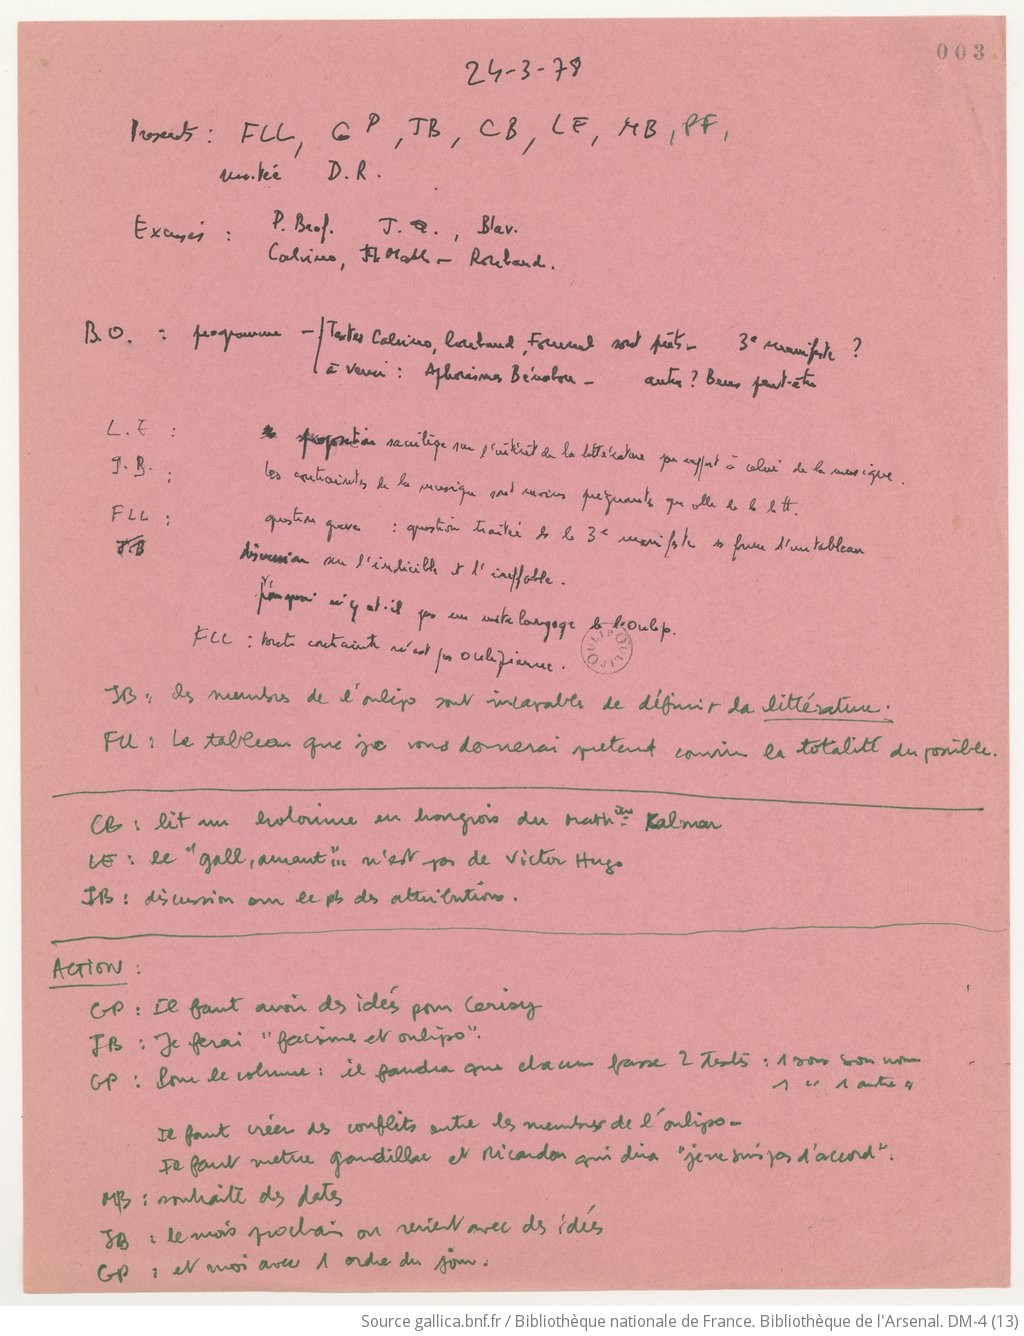 003
24-3-78
Presents : FLL, GP, JB, CB, LE, MB, PF,
invité D.R.
Excusés : P. Braf. J. Q., Blav.
Calvino, H Math - Roubaud.
B.O. : programme - Textes Calvino, Roubaud, Fournel sont prêts - 3e manifeste ?
à venir : Aphorismes Bénabou - autres ? Bens peut-être
L.E : proposition sacrilège sur l'intérêt de la littérature par rapport à celui de la musique.
J.B. : les contraintes de la musique sont moins prégnantes que celle de la litt.
FLL : question grave : question traitée ds le 3e manifeste ss forme d'un tableau
JB discussion sur l'indicible et l'ineffable.
pourquoi n'y a t-il pas un méta langage de l'Oulip.
OULIPO OULIPO
FLL : toute contrainte n'est pas oulipienne.
JB : les membres de l'oulipo sont incapables de définir la littérature.
FLL : Le tableau que je vous donnerai prétend couvrir la totalité du possible.
CB : lit un holorime en hongrois du mathien Kalmar
LE : le "gall, amant"... n'est pas de Victor Hugo
JB : discussion sur le pb des attributions.
ACTION :
GP : Il faut avoir des idées pour Cerisy
JB : Je ferai "facisme et oulipo".
GP : Pour le volume : il faudra que chacun fasse 2 textes : 1 sous son nom
1 " 1 autre "
Il faut créer des conflits entre les membres de l'oulipo -
Il faut mettre gandillac et Ricardou qui dira "je ne suis pas d'accord".
MB : souhaite des dates
JB : le mois prochain on revient avec des idées
GP : et moi avec 1 ordre du jour.
Source gallica.bnf.fr / Bibliothèque nationale de France. Bibliothèque de l'Arsenal. DM-4 (13)